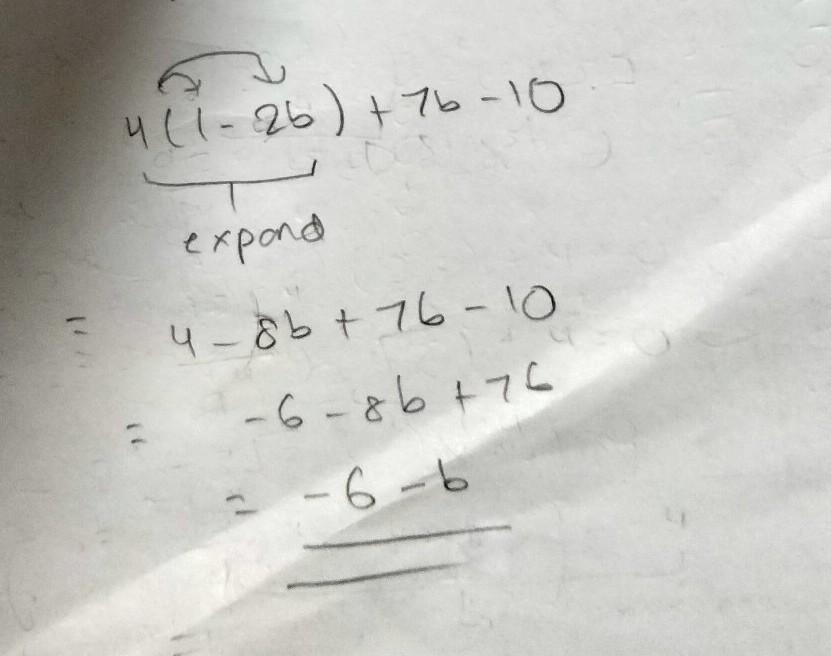 4(1-2b)+7b-10
expand
= 4-8b+7b-10
= -6-8b+7b
= -6-b